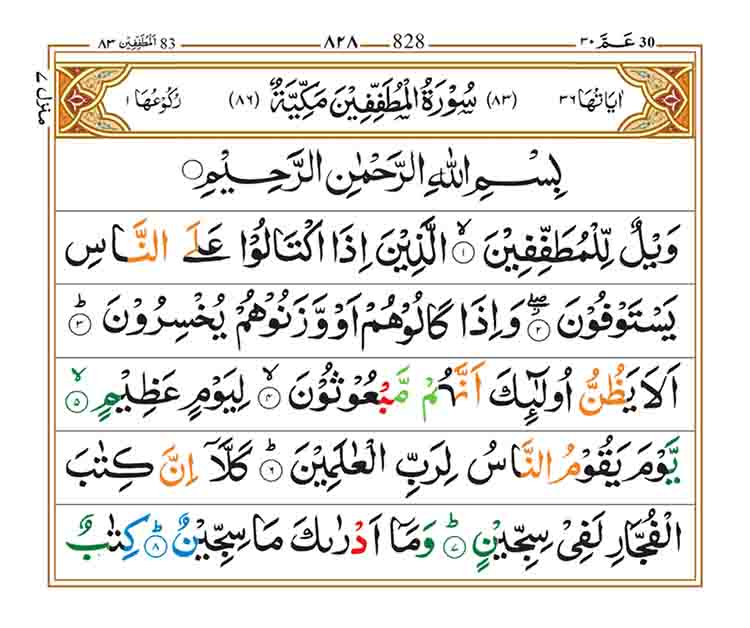 30 عَمّ ٣٠ 828 ٨٢٨ 83 اَلْمُطَفِّفِيْن ٨٣
منزل ٧
اٰيَاتُهَا ٣٦ (٨٣) سُوْرَةُ الْمُطَفِّفِيْنَ مَكِّيَّةٌ (٨٦) رُكُوْعُهَا ١
بِسْمِ اللهِ الرَّحْمٰنِ الرَّحِيْمِ
وَيْلٌ لِّلْمُطَفِّفِيْنَ ۙ‏ ١ الَّذِيْنَ اِذَا اكْتَالُوْا عَلَى النَّاسِ
يَسْتَوْفُوْنَ ۖ ٢ وَاِذَا كَالُوْهُمْ اَوْ وَّزَنُوْهُمْ يُخْسِرُوْنَ ؕ ٣
اَلَا يَظُنُّ اُولٰٓئِكَ اَنَّهُمْ مَّبْعُوْثُوْنَ ۙ ٤ لِيَوْمٍ عَظِيْمٍ ۙ ٥
يَّوْمَ يَقُوْمُ النَّاسُ لِرَبِّ الْعٰلَمِيْنَ ؕ ٦ كَلَّاۤ اِنَّ كِتٰبَ
الْفُجَّارِ لَفِيْ سِجِّيْنٍ ؕ ٧ وَمَاۤ اَدْرٰىكَ مَا سِجِّيْنٌ ؕ ٨ كِتٰبٌ